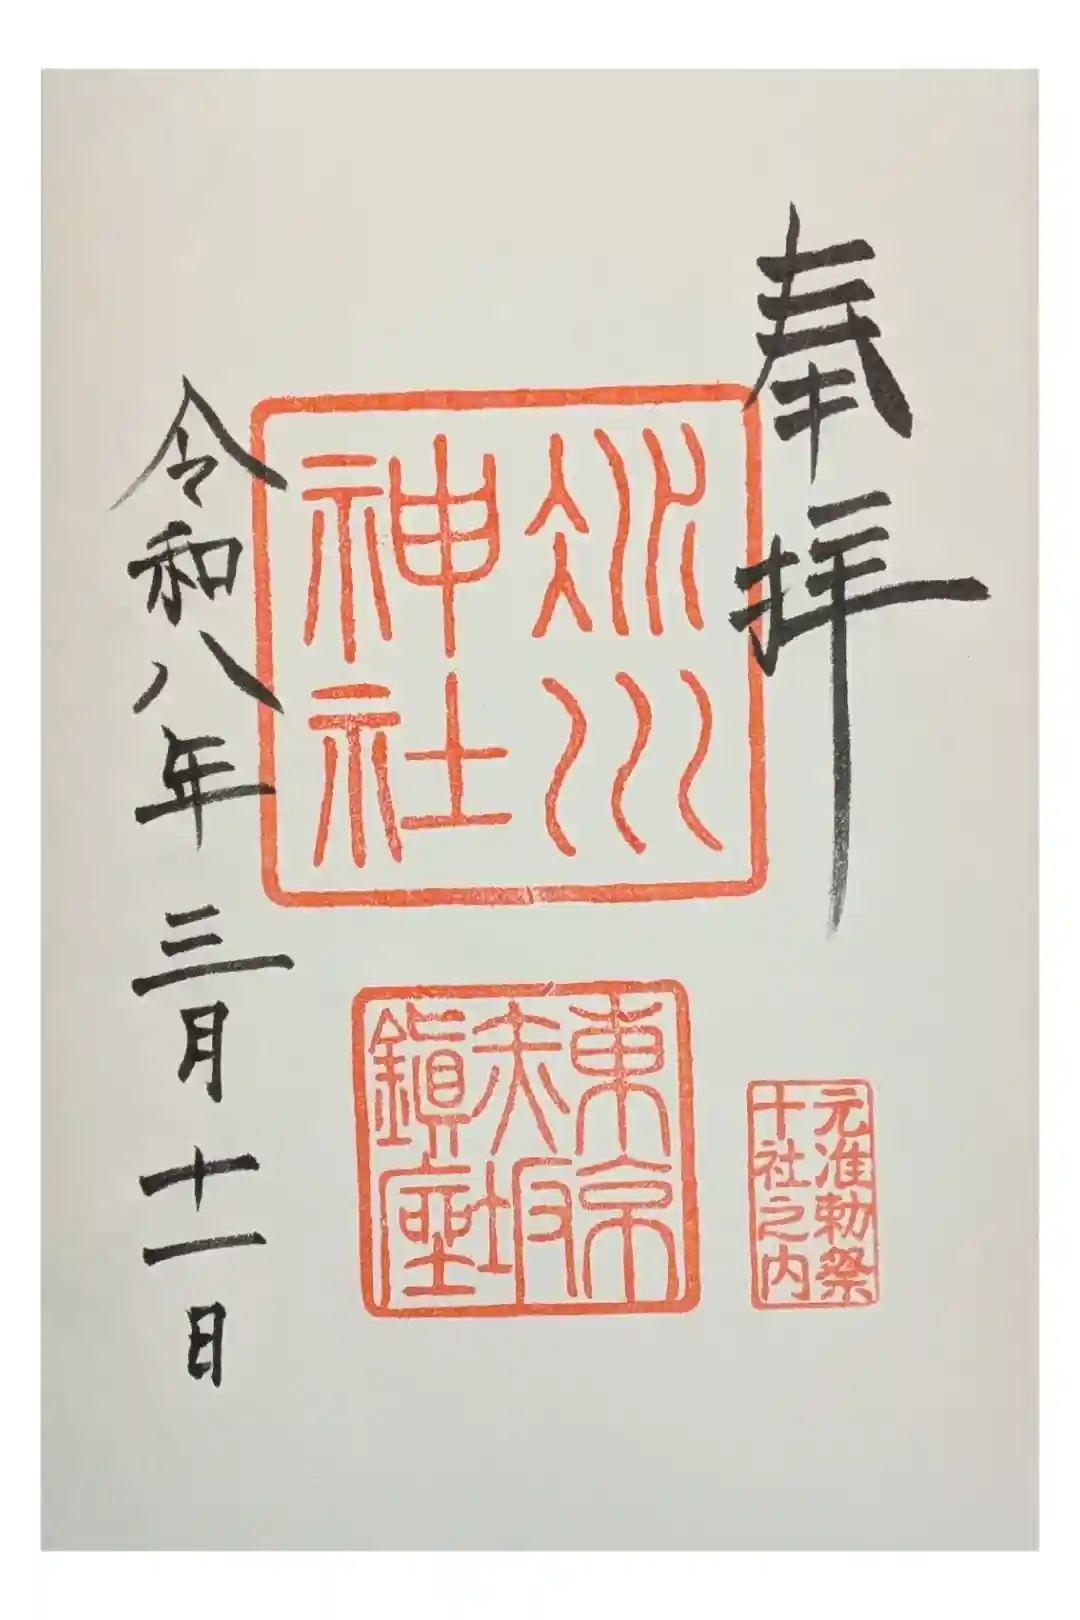 奉拝
氷川
神社
東京
赤坂
鎮座
元准勅祭
十社之内
令和八年三月十一日